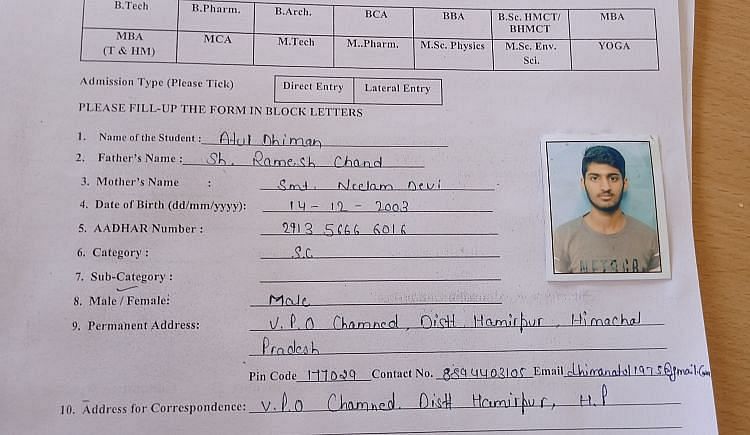 B.Tech B.Pharm. B.Arch. BCA BBA B.Sc. HMCT/ BHMCT MBA
MBA (T & HM) MCA M.Tech M..Pharm. M.Sc. Physics M.Sc. Env. Sci. YOGA
Admission Type (Please Tick) Direct Entry Lateral Entry
PLEASE FILL-UP THE FORM IN BLOCK LETTERS
1. Name of the Student : Atul Dhiman
2. Father's Name : Sh. Ramesh Chand
3. Mother's Name : Smt. Neelam Devi
4. Date of Birth (dd/mm/yyyy): 14 - 12 - 2003
5. AADHAR Number : 2913 5666 6016
6. Category : S.C
7. Sub-Category :
8. Male / Female: Male
9. Permanent Address: V.P.O Chamned, Distt Hamirpur, Himachal
Pradesh
Pin Code 177029 Contact No. 8894403105 Email dhimanatul1975@gmail.com
10. Address for Correspondence: V.P.O Chamned. Distt Hamirpur, H.P